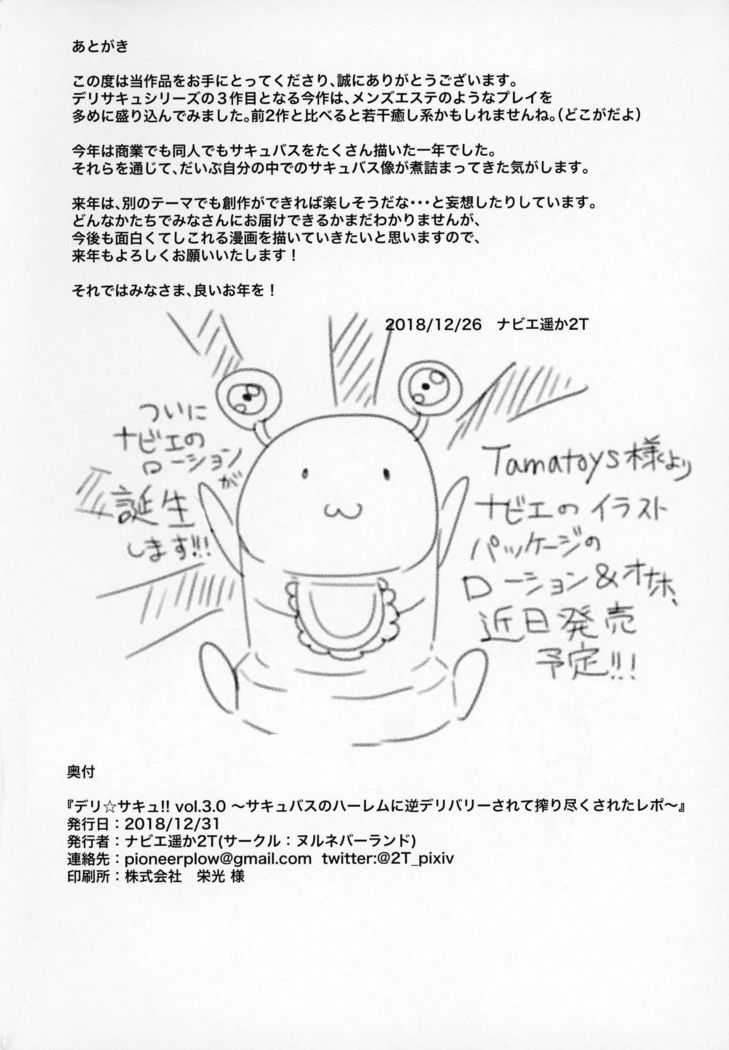 あとがき
この度は当作品をお手にとってくださり、誠にありがとうございます。
デリサキュシリーズの３作目となる今作は、メンズエステのようなプレイを
多めに盛り込んでみました。前2作と比べると若干癒し系かもしれませんね。(どこがだよ)
今年は商業でも同人でもサキュバスをたくさん描いた一年でした。
それらを通じて、だいぶ自分の中でのサキュバス像が煮詰まってきた気がします。
来年は、別のテーマでも創作ができれば楽しそうだな・・・と妄想したりしています。
どんなかたちでみなさんにお届けできるかまだわかりませんが、
今後も面白くてしこれる漫画を描いていきたいと思いますので、
来年もよろしくお願いいたします！
それではみなさま、良いお年を！
2018/12/26　ナビエ遥か2T
ついに
ナビエの
ローション
が
誕生
します!!!
Tamatoys様より
ナビエの イラスト
パッケージの
ローション＆オナホ、
近日発売
予定!!!
奥付
『デリ☆サキュ!! vol.3.0 〜サキュバスのハーレムに逆デリバリーされて搾り尽くされたレポ〜』
発行日：2018/12/31
発行者：ナビエ遥か2T(サークル：ヌルネバーランド)
連絡先：pioneerplow@gmail.com twitter:@2T_pixiv
印刷所：株式会社　栄光 様